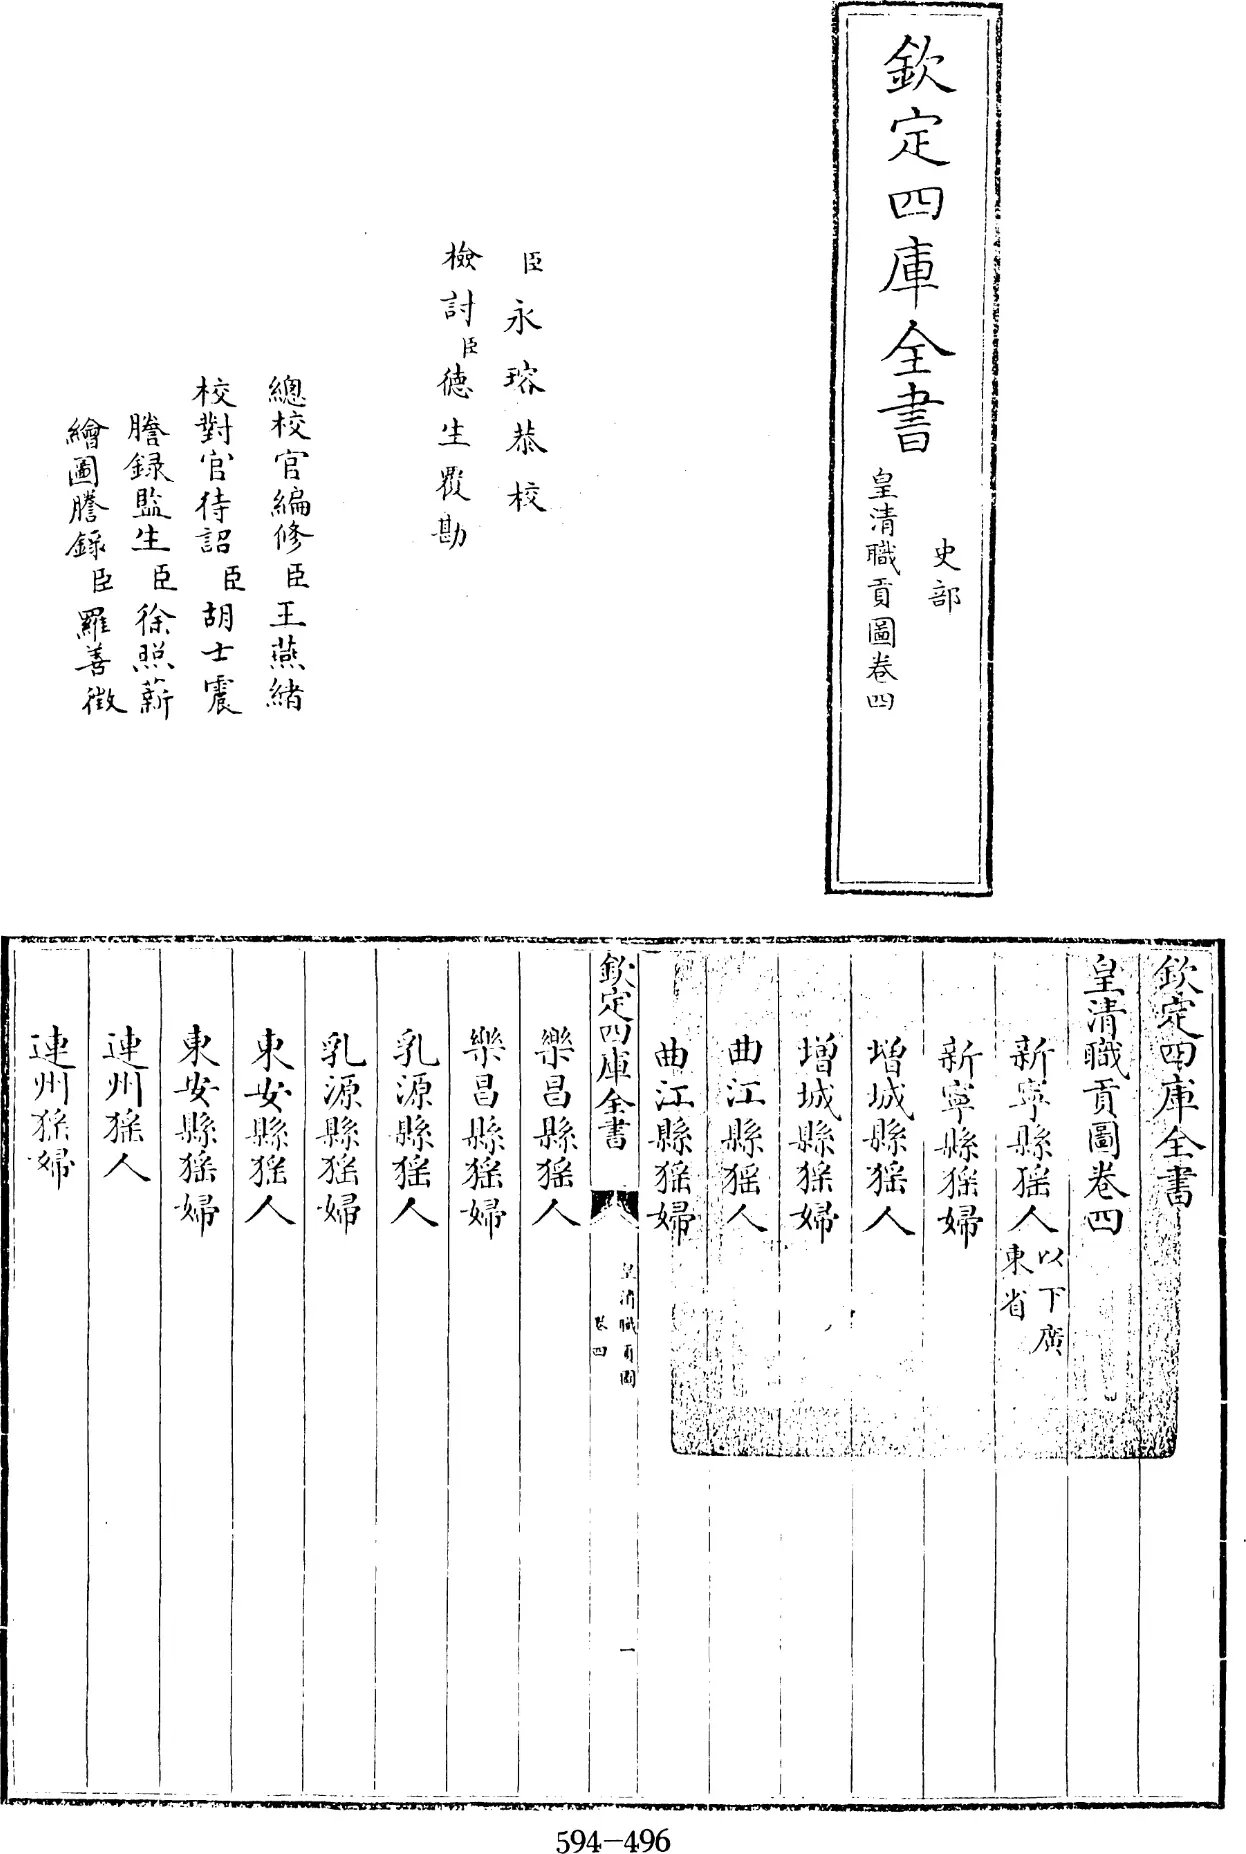 欽定四庫全書
史部
皇清職貢圖卷四
臣永瑢恭校
檢討臣德生覆勘
總校官編修臣王燕緒
校對官待詔臣胡士震
謄録監生臣徐照薪
繪圖謄錄臣羅善徵
欽定四庫全書
皇清職貢圖卷四
新寧縣猺人以下廣東省
新寧縣猺婦
增城縣猺人
增城縣猺婦
曲江縣猺人
曲江縣猺婦
欽定四庫全書
皇清職貢圖
卷四
一
樂昌縣猺人
樂昌縣猺婦
乳源縣猺人
乳源縣猺婦
東安縣猺人
東安縣猺婦
連州猺人
連州猺婦
594-496